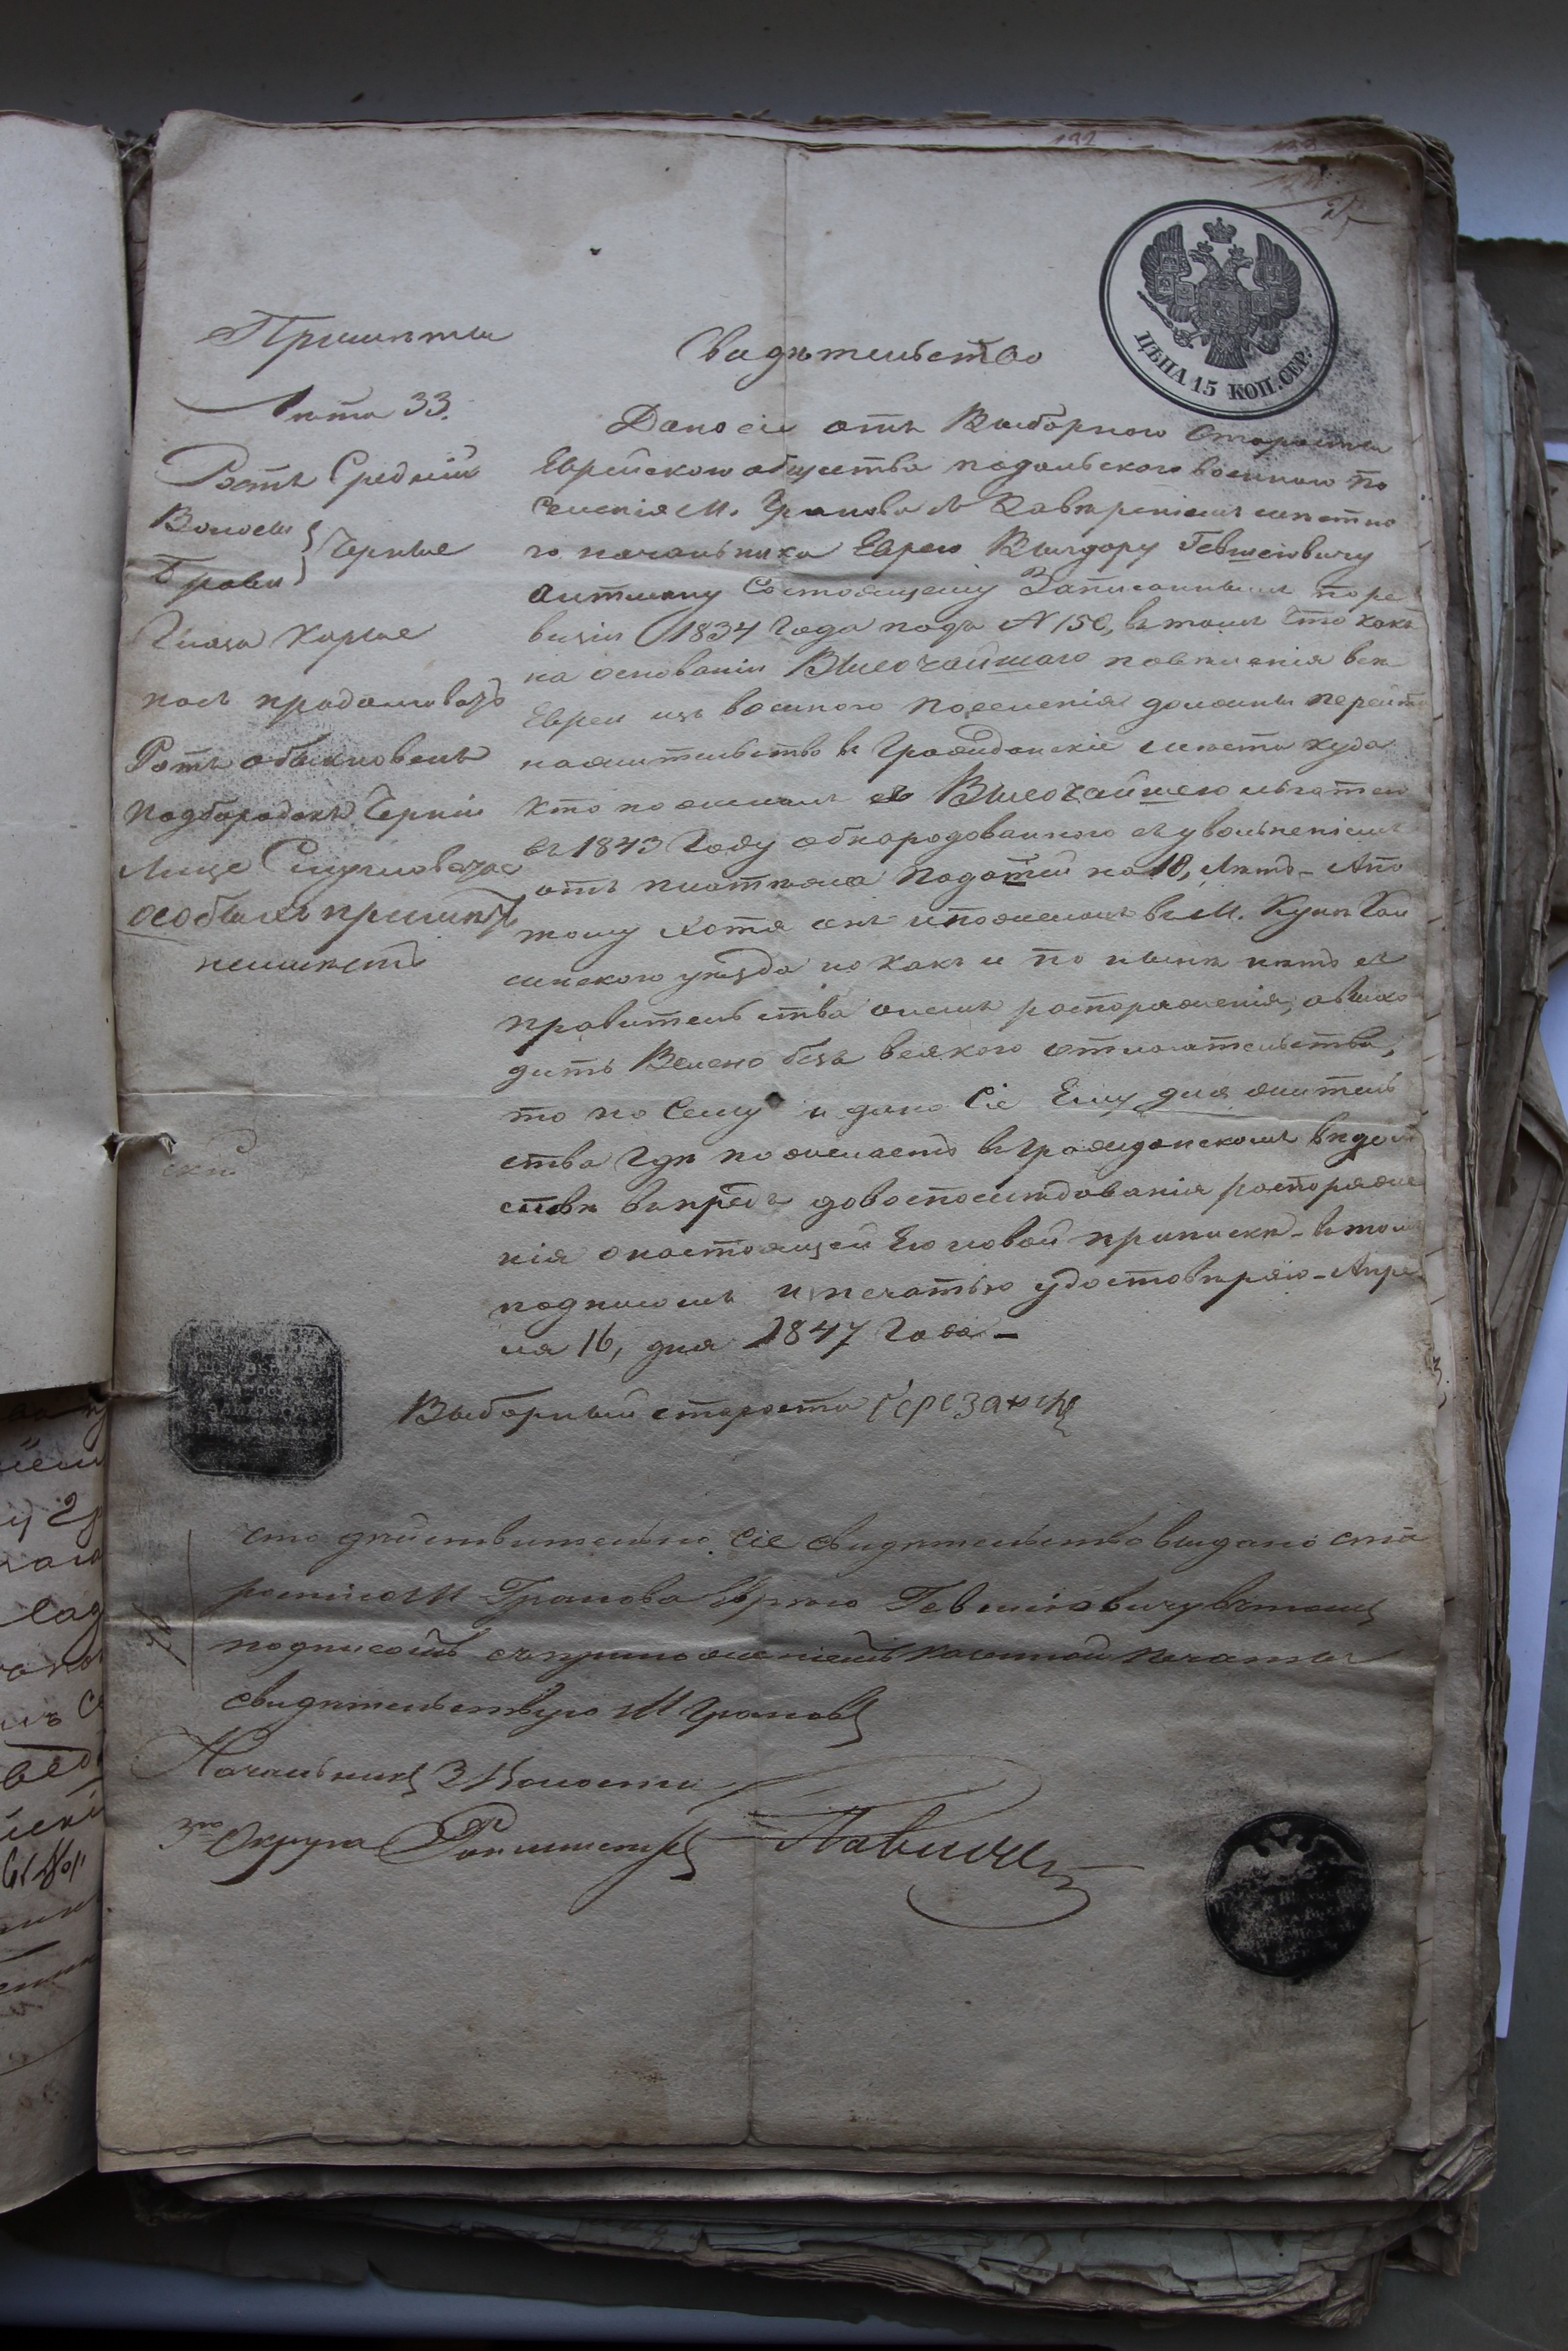 ЦѢНА 15 КОП. СЕР.
Примѣты
Лѣта 33.
Ростъ Средній
Волосы
Брови } Черные
Глаза Каріе
носъ продолговатъ
Ротъ обыкновенъ
подбородокъ Черній
Лице Смугловатое
особыхъ примѣтъ
неимѣетъ
Свидѣтельство
Дано сіе отъ Выборнаго Старосты
Еврейскаго общества подольскаго военнаго по
селенія М. Гранова Съ Завѣреніемъ мѣстна
го начальника Еврею Вигдору Гевшіовичу
Аитману Состоящему Записаннымъ по ре
визіи 1834 Года подъ N 150, въ томъ что какъ
на основаніи Высочайшаго повѣленія всѣ
Евреи изъ военнаго поселенія должны перейти
нажительство въ Гражданскіе мѣста куда
кто пожелаетъ Высочайшею милостею
въ 1843 Году обнародованного съ увольненіемъ
отъ платежа податей на 10, лѣтъ - Апо
тому хотя онъ ипожелалъ въ М. Купѣ Гай
синскаго уѣзда но какъ и по нынѣ нѣтъ съ
правительства онемъ распоряженія, авыхо
дить Велено безъ всякого отлагательства,
то по Сему и дано Сіе Ему для житель
ства гдѣ пожелаетъ въ гражданскомъ вѣдом
ствѣ впредь довоспослѣдованія распоряже
нія онастоящей Его новой припискѣ - втомъ
подписомъ ипечатью удостовѣряю - Апре
ля 16, дня 1847 Года -
Выборный староста
Что дѣйствительно Сіе свидѣтельство выдано ста
ростою М Гранова Еврею Гевшіовичу втомъ
подписомъ съприложеніемъ казенной печати
свидѣтельствую М Грановъ
Начальникъ 3 Волости
Округа Ротмистръ